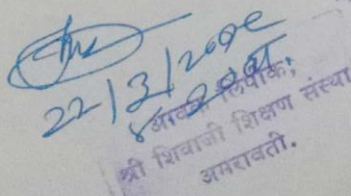 22/3/20
आवक लिपीक,
श्री शिवाजी शिक्षण संस्था
अमरावती.